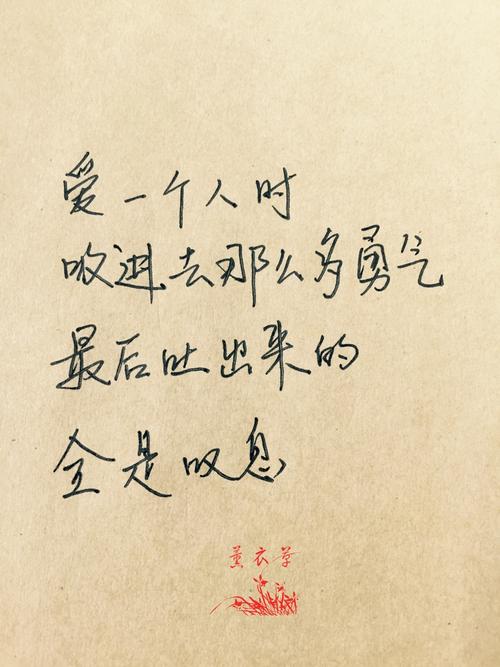 爱一个人时
吸进去那么多勇气
最后吐出来的
全是叹息
薰衣草